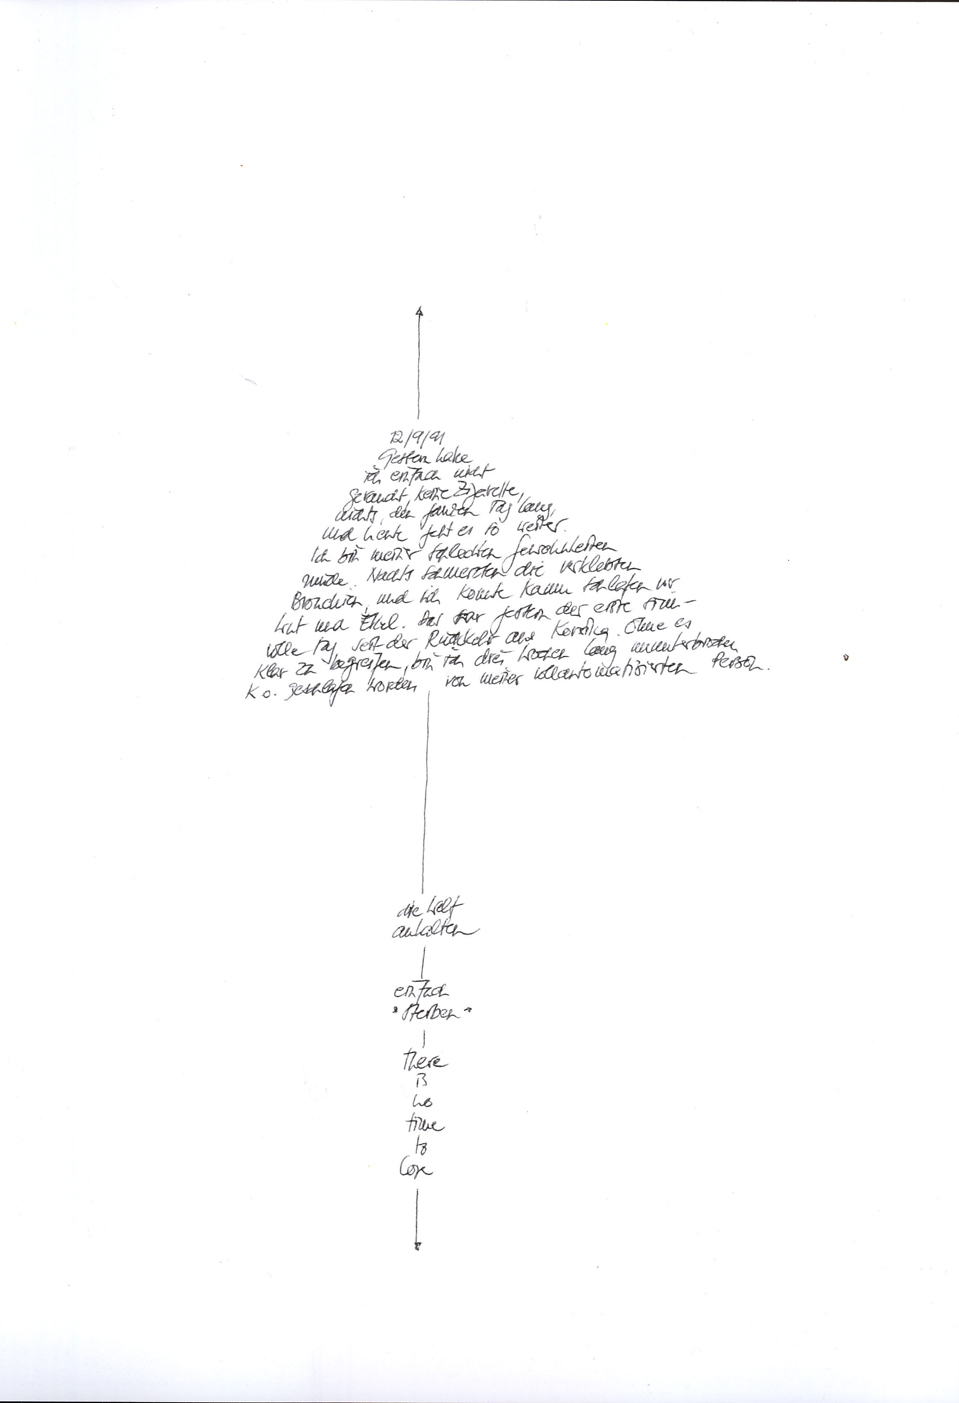 12/9/91
Gestern habe
ich einfach nicht
geraucht, keine Zigarette,
nichts, den ganzen Tag lang,
und heute geht es so weiter.
Ich bin meiner schlechten Gewohnheiten
müde. Nachts schmerzten die verklebten
Bronchien, und ich konnte kaum schlafen vor
Wut und Ekel. Das war gestern der erste sinn-
volle Tag seit der Rückkehr aus Ohne es
klar zu begreifen, bin ich drei Wochen lang ununterbrochen
K.o. geschlagen worden von meiner vollautomatisierten Person.
die Welt
anhalten
einfach
"sterben"
there
is
no
time
to